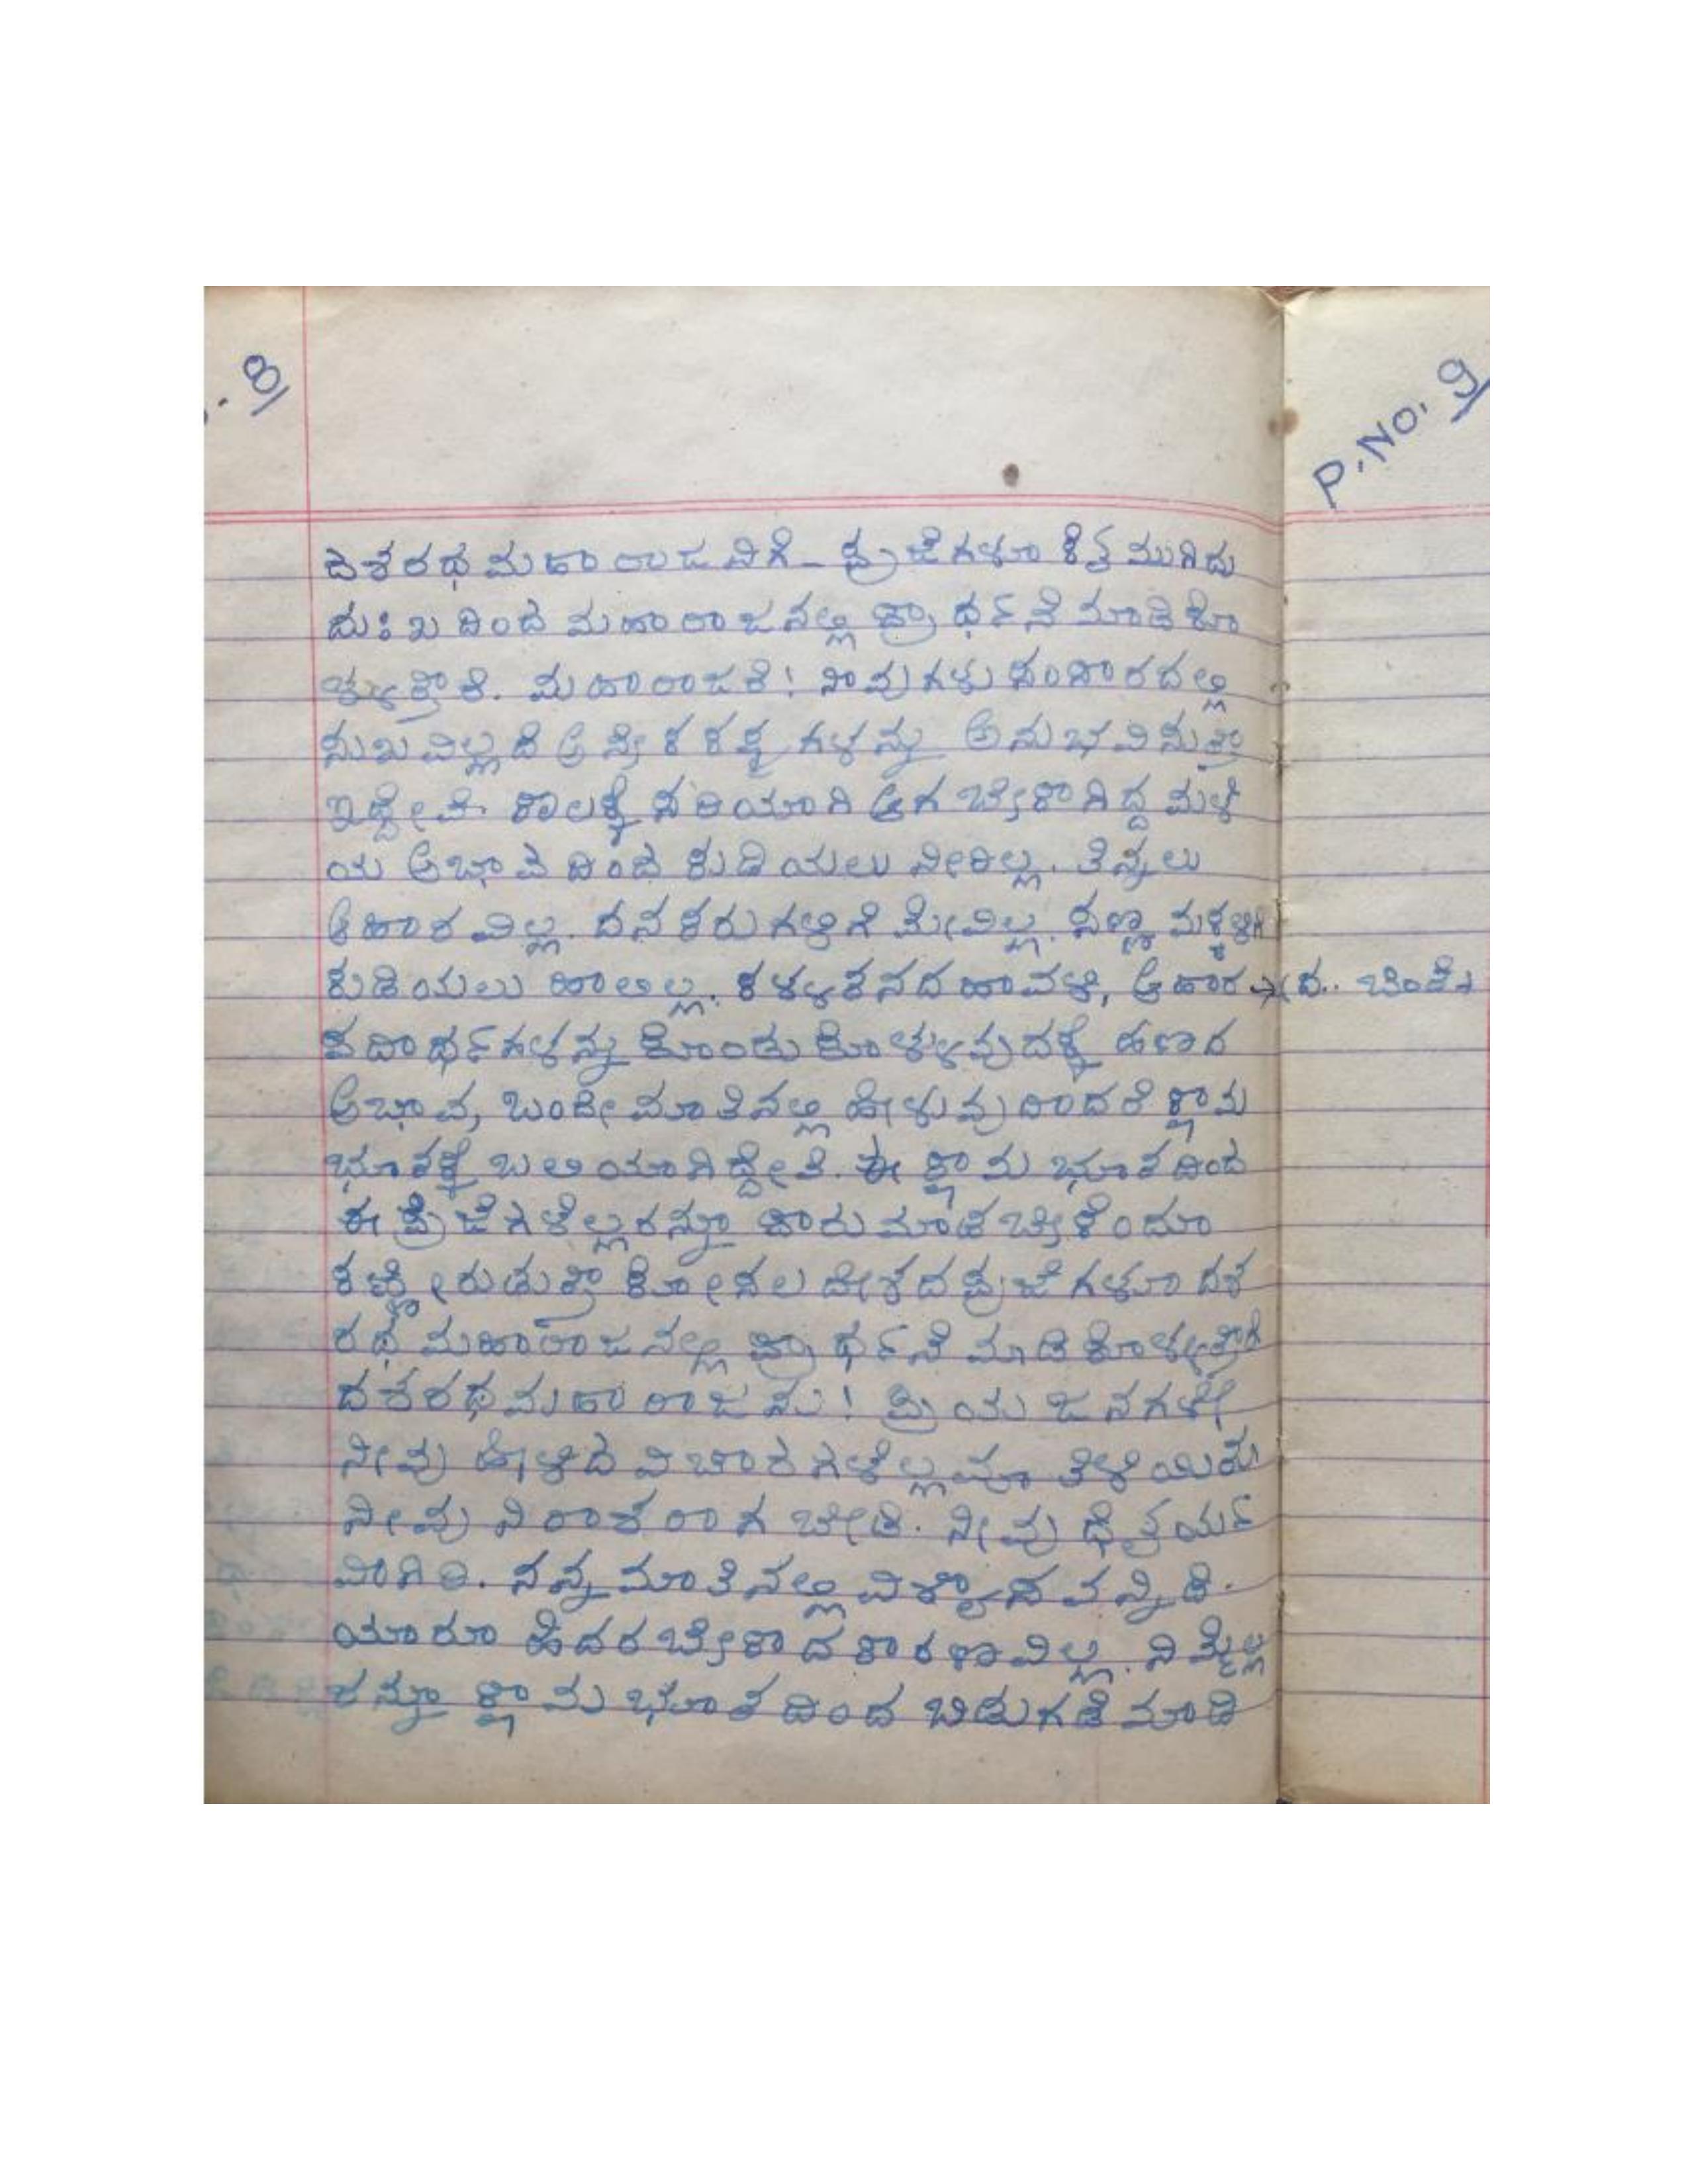 . 8
P. No. 9
ದಶರಥ ಮಹಾರಾಜನಿಗೆ - ಪ್ರಜೆಗಳೂ ಕೈ ಮುಗಿದು
ದುಃಖದಿಂದ ಮಹಾರಾಜನಲ್ಲಿ ಪ್ರಾರ್ಥನೆ ಮಾಡಿಕೊ
ಳ್ಳುತ್ತಾರೆ. ಮಹಾರಾಜರೆ! ನಾವುಗಳು ಸಂಸಾರದಲ್ಲಿ
ಸುಖವಿಲ್ಲದೆ ಅನೇಕ ಕಷ್ಟಗಳನ್ನು ಅನುಭವಿಸುತ್ತಾ
ಇದ್ದೇವೆ. ಕಾಲಕ್ಕೆ ಸರಿಯಾಗಿ ಆಗಬೇಕಾಗಿದ್ದ ಮಳೆ
ಯ ಅಭಾವದಿಂದ ಕುಡಿಯಲು ನೀರಿಲ್ಲ. ತಿನ್ನಲು
ಆಹಾರವಿಲ್ಲ. ದನಕರುಗಳಿಗೆ ಮೇವಿಲ್ಲ. ಸಣ್ಣ ಮಕ್ಕಳಿಗೆ
ಕುಡಿಯಲು ಹಾಲಿಲ್ಲ. ಕಳ್ಳತನದ ಹಾವಳಿ, ಆಹಾರ →(ದ..
ಪದಾರ್ಥಗಳನ್ನು ಕೊಂಡುಕೊಳ್ಳುವುದಕ್ಕೆ ಹಣದ
ಅಭಾವ, ಒಂದೇ ಮಾತಿನಲ್ಲಿ ಹೇಳುವುದಾದರೆ ಕ್ಷಾಮ
ಭೂತಕ್ಕೆ ಬಲಿಯಾಗಿದ್ದೇವೆ. ಈ ಕ್ಷಾಮ ಭೂತದಿಂದ
ಈ ಪ್ರಜೆಗಳೆಲ್ಲರನ್ನೂ ಪಾರುಮಾಡಬೇಕೆಂದೂ
ಕಣ್ಣೀರಿಡುತ್ತಾ ಕೋಸಲ ದೇಶದ ಪ್ರಜೆಗಳೂ ದಶ
ರಥ ಮಹಾರಾಜನಲ್ಲಿ ಪ್ರಾರ್ಥನೆ ಮಾಡಿಕೊಳ್ಳುತ್ತಾರೆ
ದಶರಥ ಮಹಾರಾಜನು! ಪ್ರಿಯ ಜನಗಳೇ
ನೀವು ಹೇಳಿದ ವಿಚಾರಗಳೆಲ್ಲವೂ ತಿಳಿಯಿತು
ನೀವು ನಿರಾಶರಾಗಬೇಡಿ. ನೀವು ಧೈರ್ಯ
ವಾಗಿರಿ. ನನ್ನ ಮಾತಿನಲ್ಲಿ ವಿಶ್ವಾಸವನ್ನಿಡಿ.
ಯಾರೂ ಹೆದರಬೇಕಾದ ಕಾರಣವಿಲ್ಲ. ನಿಮ್ಮೆಲ್ಲ
ರನ್ನೂ ಕ್ಷಾಮ ಭೂತದಿಂದ ಬಿಡುಗಡೆ ಮಾಡಿ